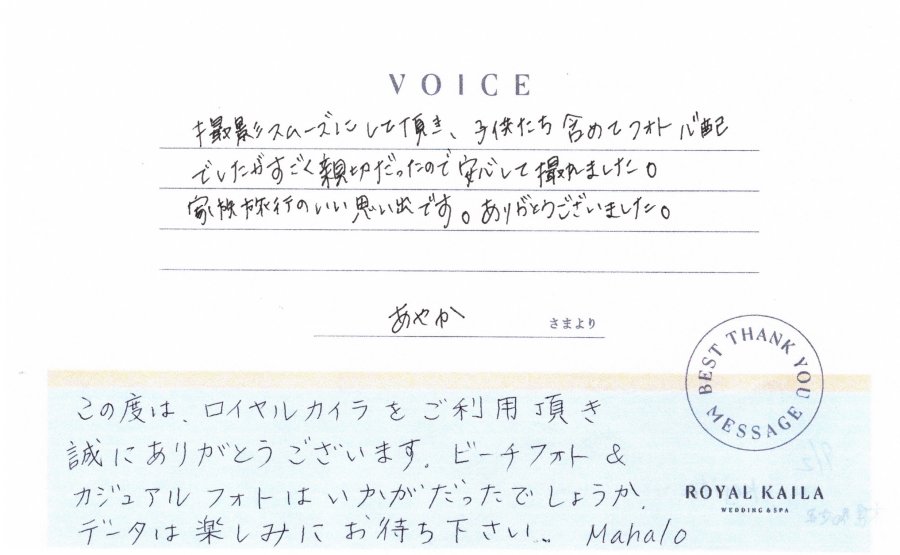 VOICE
撮影スムーズにして頂き、子供たち含めてフォト心配
でしたがすごく親切だったので安心して撮れました。
家族旅行のいい思い出です。ありがとうございました。
あやか さまより
BEST THANK YOU MESSAGE
この度は、ロイヤルカイラをご利用頂き
誠にありがとうございます。ビーチフォト &
カジュアルフォトはいかがだったでしょうか。
データは楽しみにお待ち下さい。 Mahalo
ROYAL KAILA
WEDDING & SPA